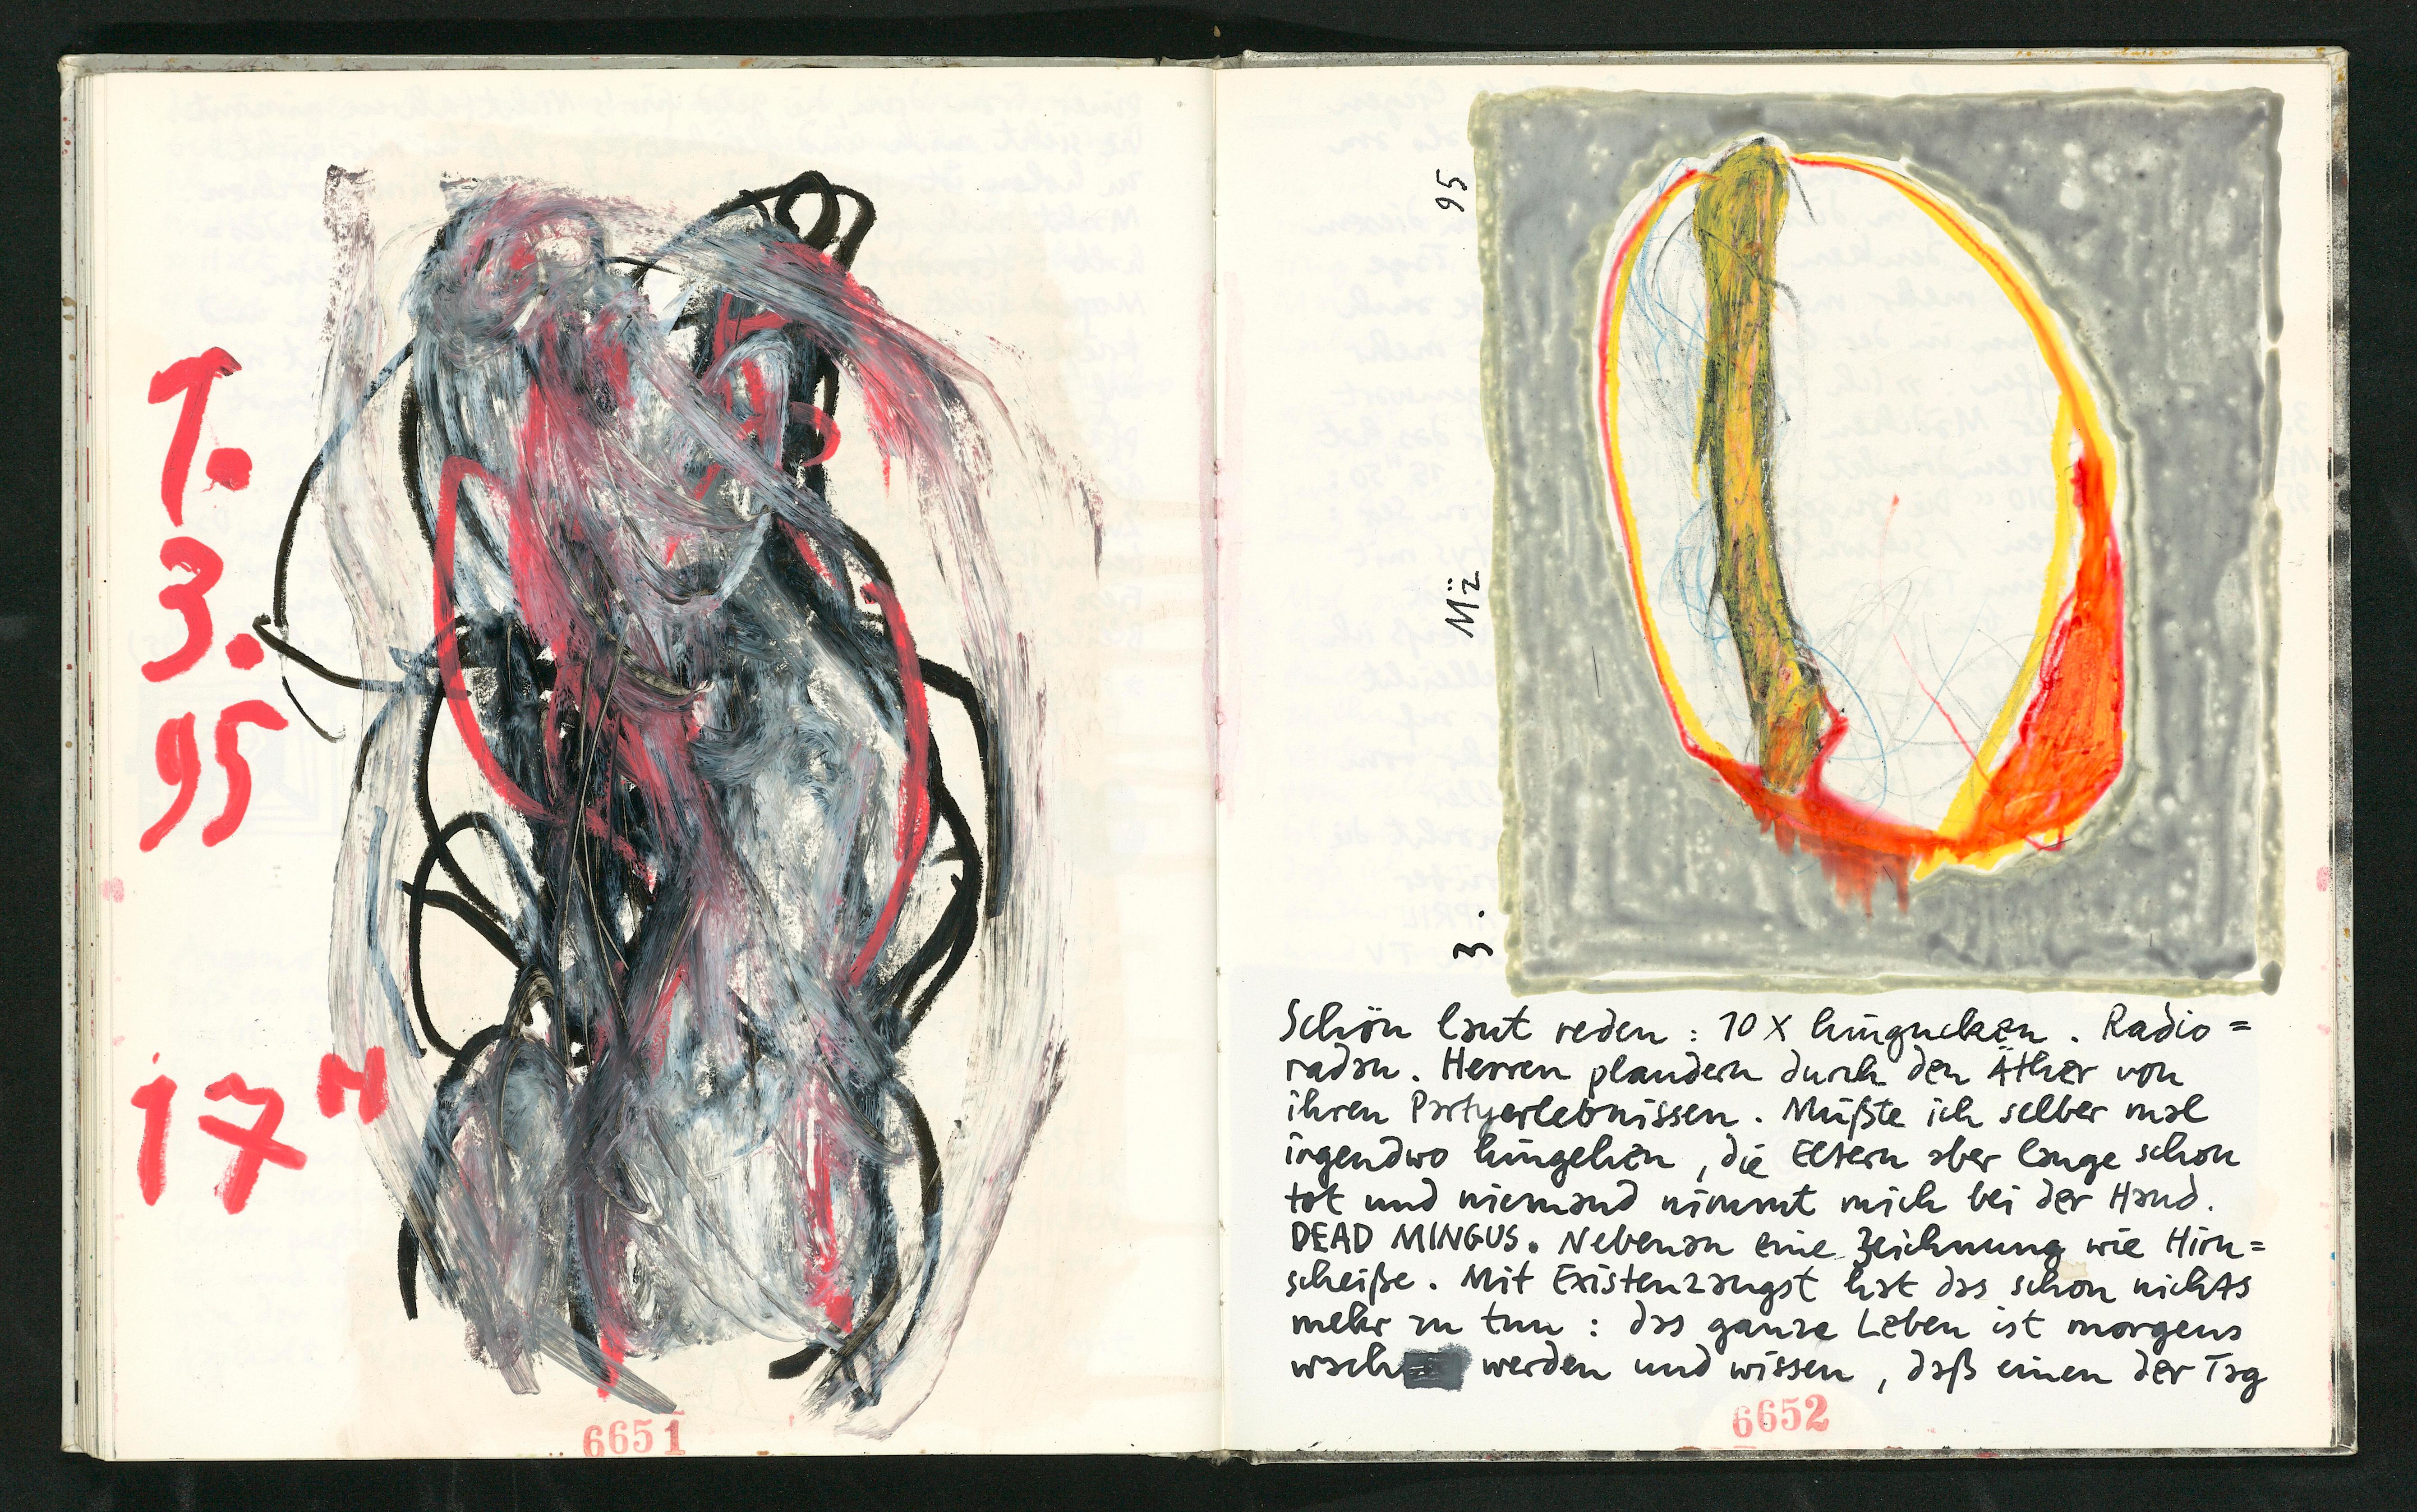 1.
3.
95
17 H
6651
3. Mz 95
Schön laut reden : 10 X hingucken . Radio =
radau . Herren plaudern durch den Äther von
ihren Partyerlebnissen . Müßte ich selber mal
irgendwo hingehen , die Eltern aber lange schon
tot und niemand nimmt mich bei der Hand .
DEAD MINGUS . Nebenan eine Zeichnung wie Hirn =
scheiße . Mit Existenzangst hat das schon nichts
mehr zu tun : das ganze Leben ist morgens
wach werden und wissen , daß einen der Tag
6652